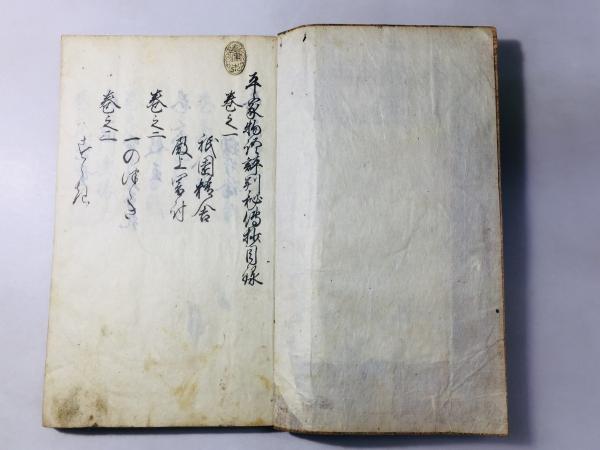 平家物語評判秘傳抄目録
巻之一
祇園精舎
殿上闇討
巻之二
一の
巻之二